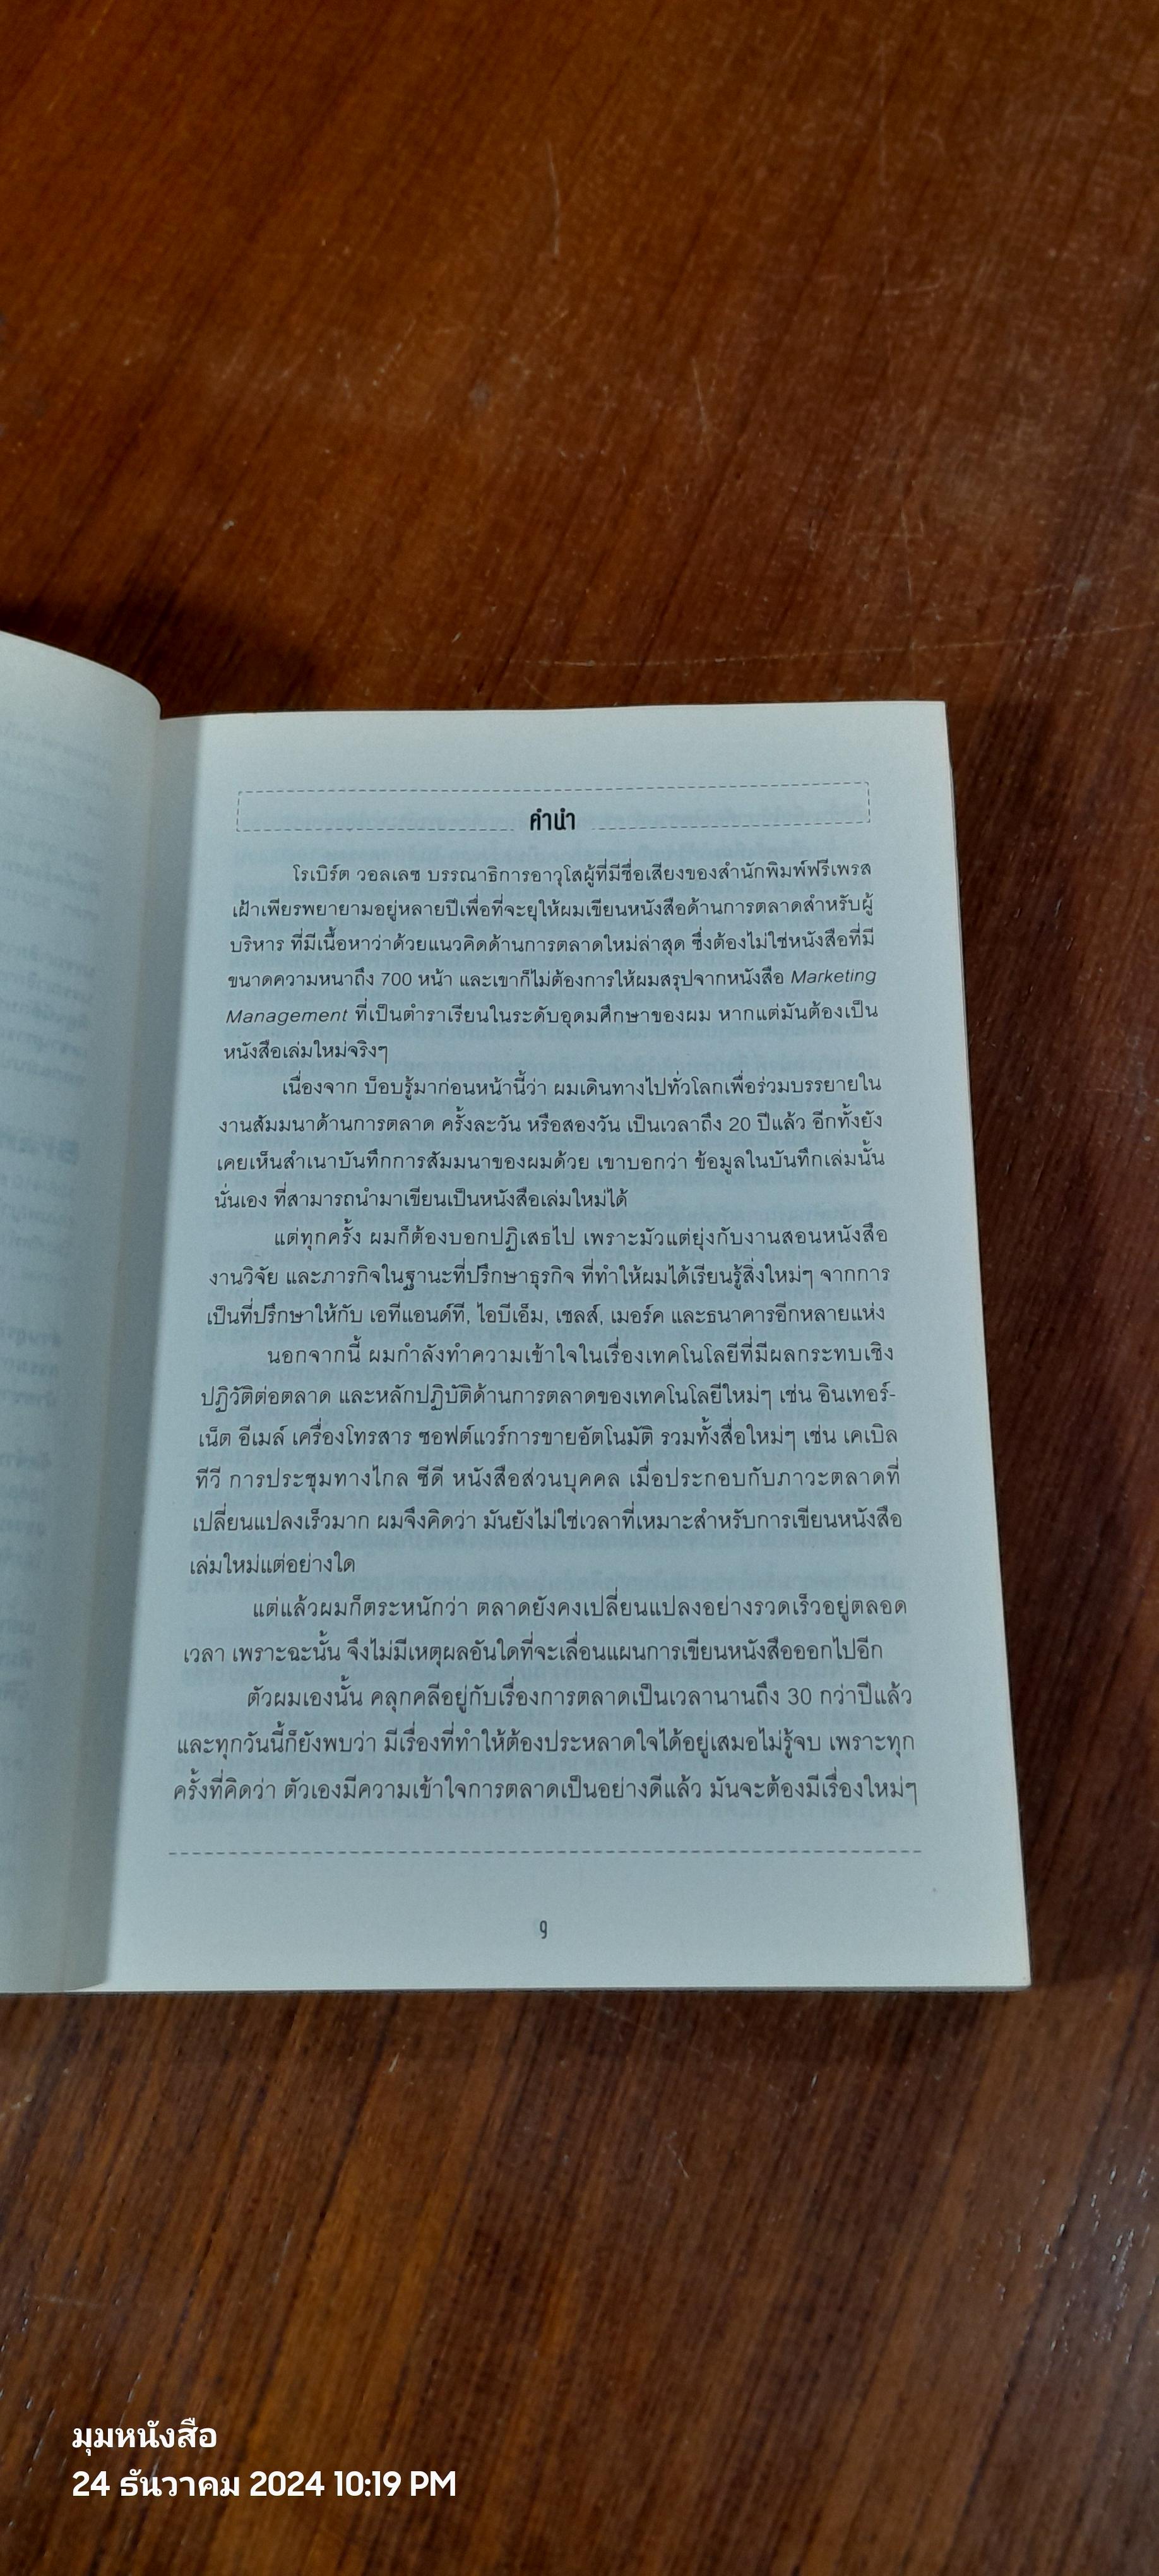 คำนำ
โรเบิร์ต วอลเลซ บรรณาธิการอาวุโสผู้ที่มีชื่อเสียงของสำนักพิมพ์ฟรีเพรส
เฝ้าเพียรพยายามอยู่หลายปีเพื่อที่จะยุให้ผมเขียนหนังสือด้านการตลาดสำหรับผู้
บริหาร ที่มีเนื้อหาว่าด้วยแนวคิดด้านการตลาดใหม่ล่าสุด ซึ่งต้องไม่ใช่หนังสือที่มี
ขนาดความหนาถึง 700 หน้า และเขาก็ไม่ต้องการให้ผมสรุปจากหนังสือ Marketing
Management ที่เป็นตำราเรียนในระดับอุดมศึกษาของผม หากแต่มันต้องเป็น
หนังสือเล่มใหม่จริงๆ
เนื่องจาก บ็อบรู้มาก่อนหน้านี้ว่า ผมเดินทางไปทั่วโลกเพื่อร่วมบรรยายใน
งานสัมมนาด้านการตลาด ครั้งละวัน หรือสองวัน เป็นเวลาถึง 20 ปีแล้ว อีกทั้งยัง
เคยเห็นสำเนาบันทึกการสัมมนาของผมด้วย เขาบอกว่า ข้อมูลในบันทึกเล่มนั้น
นั่นเอง ที่สามารถนำมาเขียนเป็นหนังสือเล่มใหม่ได้
แต่ทุกครั้ง ผมก็ต้องบอกปฏิเสธไป เพราะมัวแต่ยุ่งกับงานสอนหนังสือ
งานวิจัย และภารกิจในฐานะที่ปรึกษาธุรกิจ ที่ทำให้ผมได้เรียนรู้สิ่งใหม่ๆ จากการ
เป็นที่ปรึกษาให้กับ เอทีแอนด์ที, ไอบีเอ็ม, เชลส์, เมอร์ค และธนาคารอีกหลายแห่ง
นอกจากนี้ ผมกำลังทำความเข้าใจในเรื่องเทคโนโลยีที่มีผลกระทบเชิง
ปฏิวัติต่อตลาด และหลักปฏิบัติด้านการตลาดของเทคโนโลยีใหม่ๆ เช่น อินเทอร์-
เน็ต อีเมล์ เครื่องโทรสาร ซอฟต์แวร์การขายอัตโนมัติ รวมทั้งสื่อใหม่ๆ เช่น เคเบิล
ทีวี การประชุมทางไกล ซีดี หนังสือส่วนบุคคล เมื่อประกอบกับภาวะตลาดที่
เปลี่ยนแปลงเร็วมาก ผมจึงคิดว่า มันยังไม่ใช่เวลาที่เหมาะสำหรับการเขียนหนังสือ
เล่มใหม่แต่อย่างใด
แต่แล้วผมก็ตระหนักว่า ตลาดยังคงเปลี่ยนแปลงอย่างรวดเร็วอยู่ตลอด
เวลา เพราะฉะนั้น จึงไม่มีเหตุผลอันใดที่จะเลื่อนแผนการเขียนหนังสือออกไปอีก
ตัวผมเองนั้น คลุกคลีอยู่กับเรื่องการตลาดเป็นเวลานานถึง 30 กว่าปีแล้ว
และทุกวันนี้ก็ยังพบว่า มีเรื่องที่ทำให้ต้องประหลาดใจได้อยู่เสมอไม่รู้จบ เพราะทุก
ครั้งที่คิดว่า ตัวเองมีความเข้าใจการตลาดเป็นอย่างดีแล้ว มันจะต้องมีเรื่องใหม่ๆ
9
มุมหนังสือ
24 ธันวาคม 2024 10:19 PM